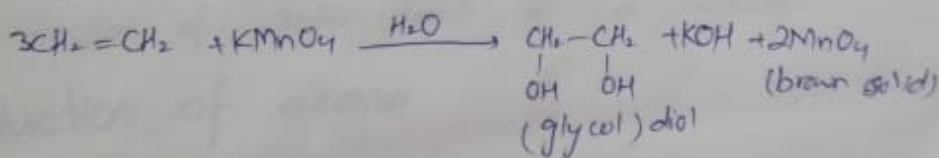 3CH₂=CH₂ +KMnO₄ H₂O → CH₂-CH₂ +KOH +2MnO₄
OH OH (brown solid)
(glycol) diol